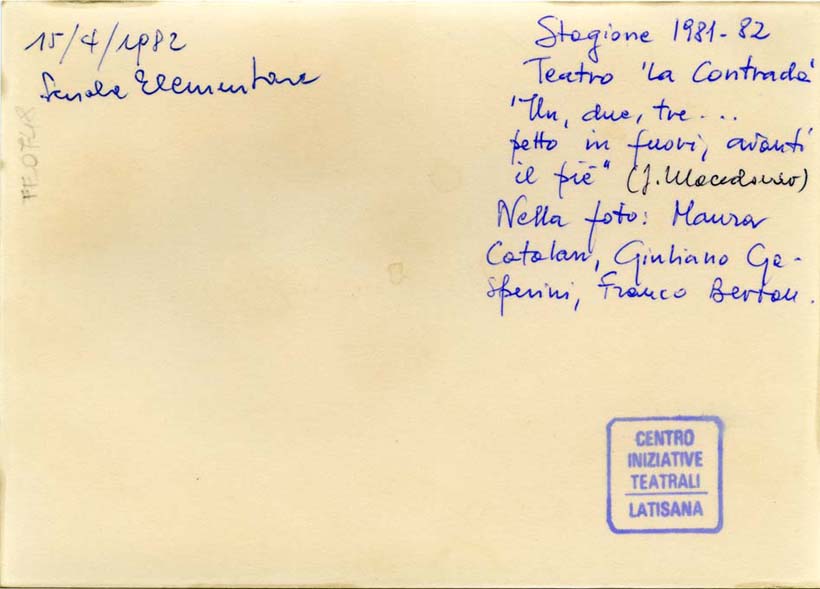 15/4/1982
Scuola Elementare
FF0748
Stagione 1981-82
Teatro 'La Contrada'
"Un, due, tre...
petto in fuori, avanti
il piè" (J. Macedonio)
Nella foto: Maura
Catalan, Giuliano Ga-
sperini, Franco Bertan.
CENTRO
INIZIATIVE
TEATRALI
LATISANA